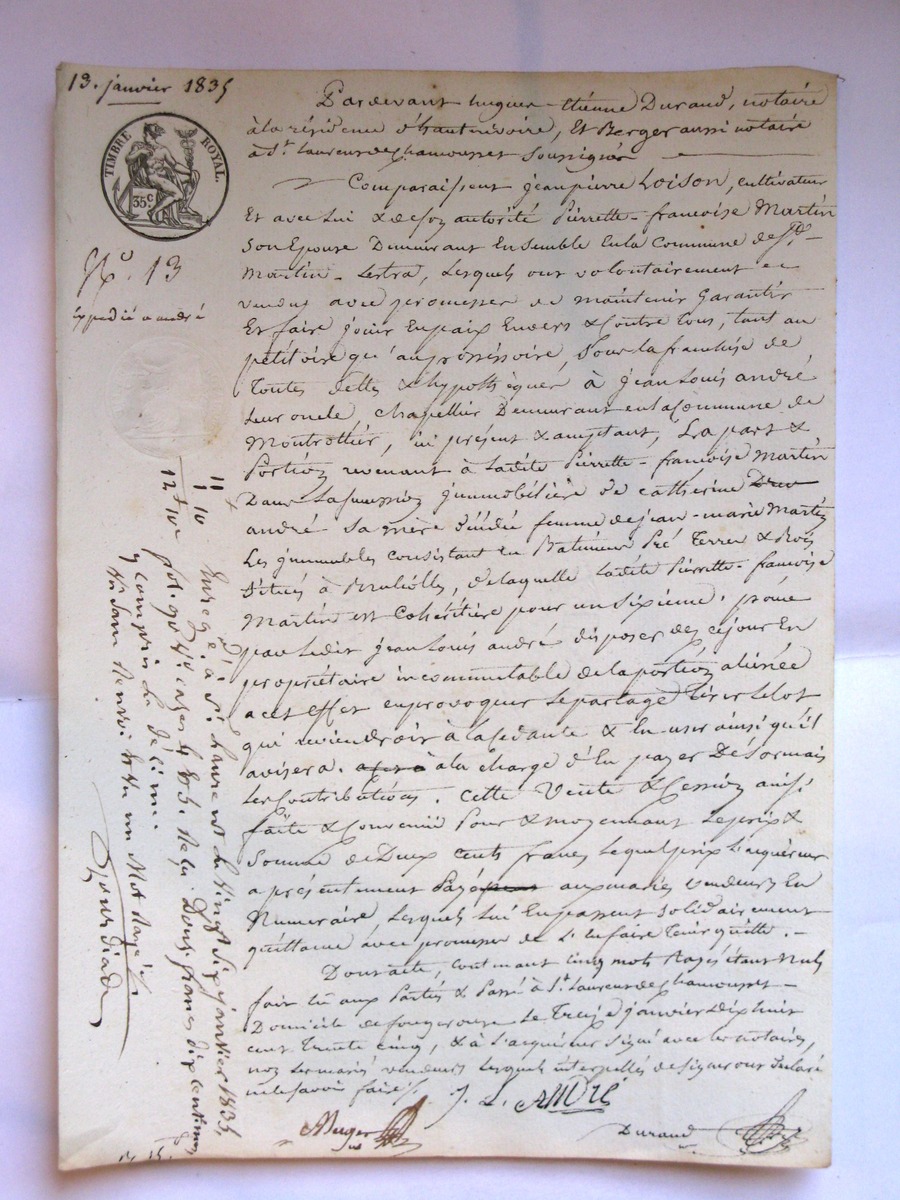 13. janvier 1835
TIMBRE ROYAL.
35 c.
No. 13
Expédié a andré
Pardevant hugues-Etienne Durand, notaire
à la résidence d'hauterivoire, Et Berger aussi notaire
à St. Laurent de Chamousset Soussignés
Comparaissent jean pierre Loison, cultivateur
Et avec Lui & de son autorité Pierrette-francoise Martin
Son Epouse Demeurant Ensemble En la Commune de St.
Martin-Lestra, Lesquels ont volontairement
vendus avec promesse de maintenir Garantir
Et faire jouir En paix Envers & Contre Tous, tant au
petitoire qu'au possessoire, Sous la franchise de
Toutes dettes & hypothèques à jean Louis andré
Leur oncle chapellier Demeurant en la Commune de
Montrottier, ici présent & acceptant, La part &
Portion revenant à Ladite Pierrette-francoise Martin
Dans La succession immobilière de catherine
andré Sa mère décédée femme de jean-marie Martin
Les immeubles consistant en Batiment Pré Terres & Bois
Situés à Brullioles, de laquelle Ladite Pierrette-francoise
Martin est Cohéritière pour un Sixième.
par Ledit jean Louis andré disposer dez ce jour En
propriétaire incommutable de la portion aliénée
a cet Effet en provoquer Le partage Tirer Le lot
qui reviendroit à la cédante & En user ainsi qu'il
avisera. à la charge d'En payer Désormais
Les Contributions. Cette Vente & Cession ainsi
faite & Convenue Pour & moyennant Le prix &
Somme de Deux Cents francs Lequel prix L'acquéreur
a présentement Payé aux mariés vendeurs En
Numéraire Lesquels Lui En passent Solidairement
quittance avec promesse de L'En faire Tenir quitte.
Dont acte, contenant cinq mots Rayés étant nuls
fait Lu aux Parties & Passé à St. Laurent de Chamousset
Domicile de fougerouse Le Treize janvier dix huit
cent Trente cinq, & à L'acquéreur Signé avec les notaires,
non Les mariés vendeurs Lesquels interpellés de Signer ont Déclaré
ne le Savoir faire.
J. L. ANDRÉ
Berger
Durand
Enregé à St. Laurent Le Vingt Six janvier 1835,
fol. cases 4 & 5. Reçu Douze francs dix centimes
y compris Le décime.
un Mot Rayé